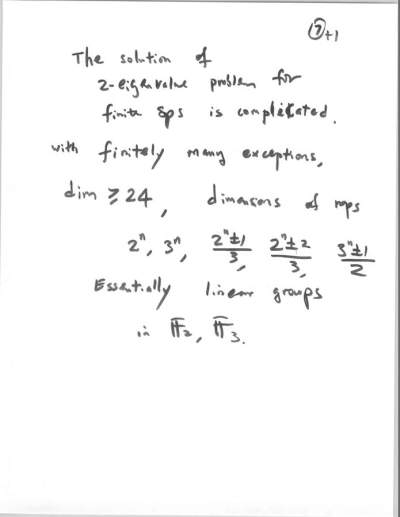 ⑦+1
The solution of
2-eigenvalue problem for
finite gps is complicated.
with finitely many exceptions,
dim ≥ 24, dimensions of reps
2ⁿ, 3ⁿ, (2ⁿ±1)/3, (2ⁿ±2)/3, (3ⁿ±1)/2
Essentially linear groups
in F̄₂, F̄₃.